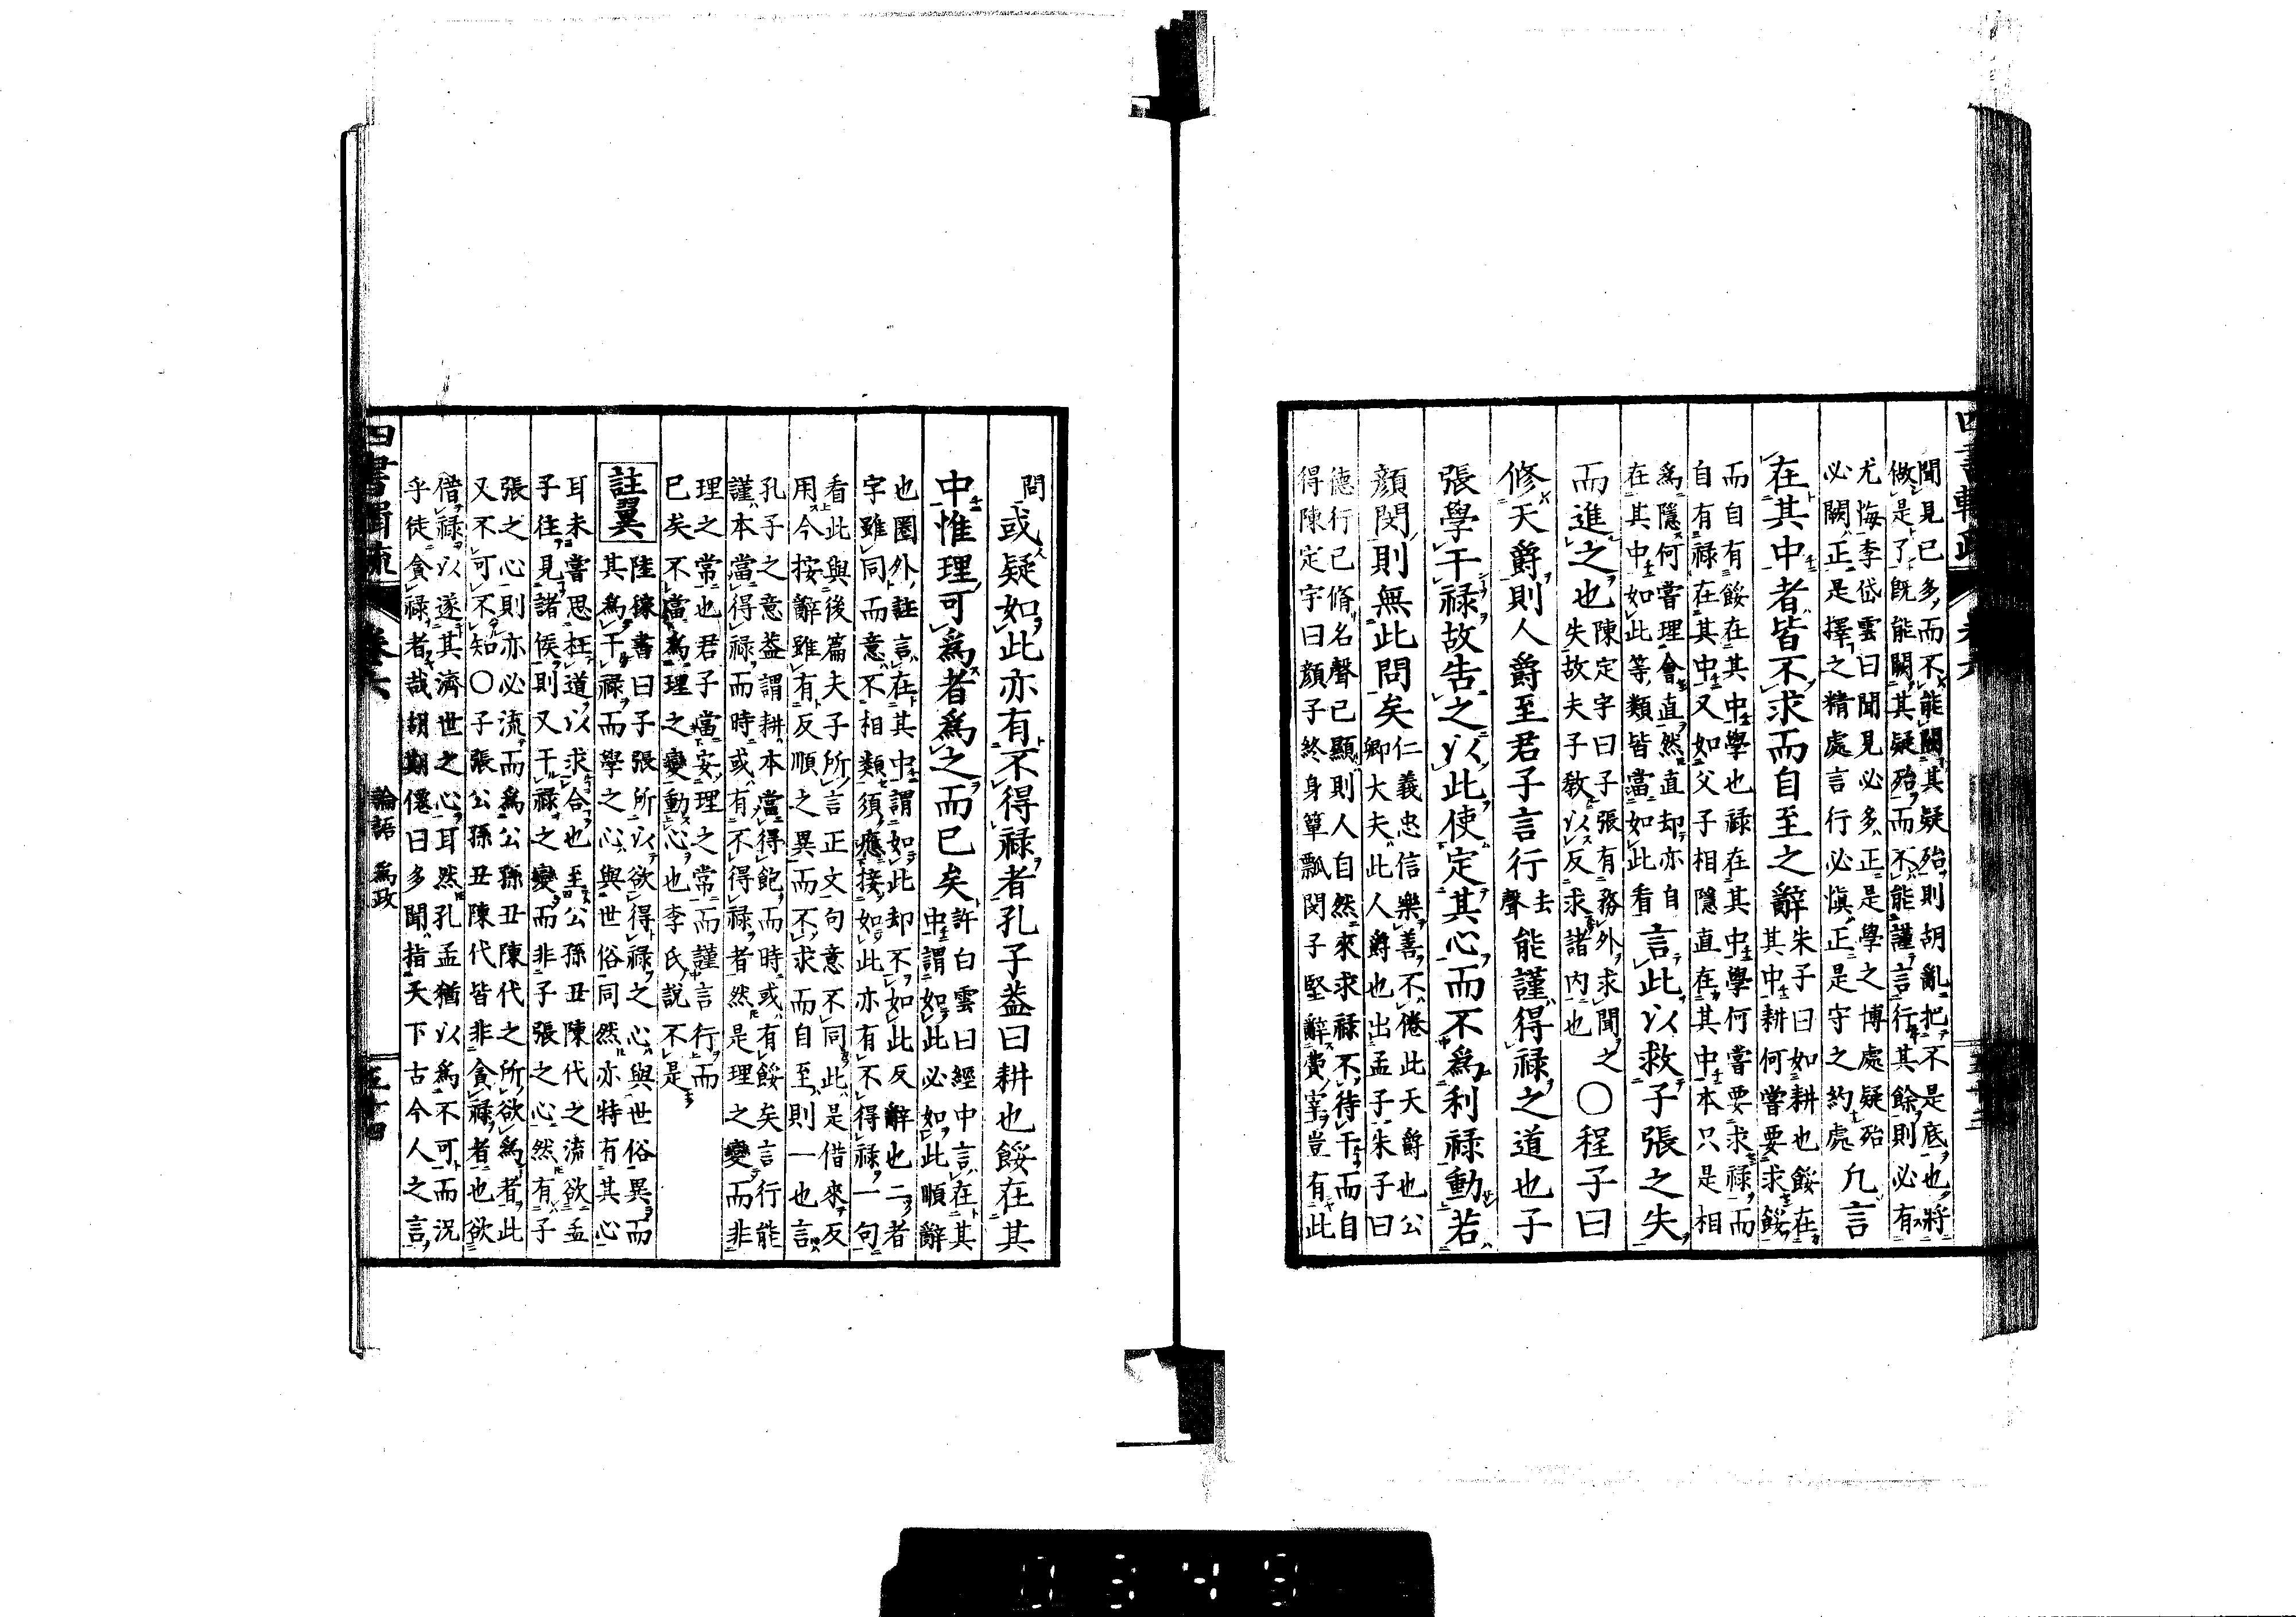 聞見已多而不能闕其疑殆則胡亂把不是底也將
做是了既能闕其疑殆而不能謹言行其餘則必有
尤悔李岱雲曰聞見必多正是學之博處疑殆
必闕正是擇之精處言行必慎正是守之約處
凡言
在其中者皆不求而自至之辭
朱子曰如耕也餒在
其中耕何嘗要求餒
而自有餒在其中學也祿在其中學何嘗要求祿而
自有祿在其中又如父子相隱直在其中本只是相
爲隱何嘗理會直然直却亦自
在其中如此等類皆當如此看
言此以救子張之失
而進之也
陳定宇曰子張有務外求聞之
失故夫子教以反求諸內也
〇程子曰
修天爵則人爵至君子言行
去
聲
能謹得祿之道也子
張學干祿故告之以此使定其心而不爲利祿動若
顏閔則無此問矣
仁義忠信樂善不倦此天爵也公
卿大夫此人爵也出孟子朱子曰
德行已脩名聲已顯則人自然來求祿不待干而自
得陳定宇曰顏子終身簞瓢閔子堅辭費宰豈有此
問
或疑如此亦有不得祿者孔子蓋曰耕也餒在其
中惟理可爲者爲之而已矣
許白雲曰經中言在其
中謂如此必如此順辭
也圈外註言在其中謂如此却不如此反辭也二者
字雖同而意不相類須應接如此亦有不得祿一句
看此與後篇夫子所言正文句意不同此是借來反
用今按辭雖有反順之異而不求而自至則一也言
孔子之意蓋謂耕本當得飽而時或有餒矣言行能
謹本當得祿而時或有不得祿者然是理之變而非
理之常也君子當安理之常而謹言行而
已矣不當爲理之變動心也李氏說不是
註翼
陸稼書曰子張所以欲得祿之心與世俗異而
其爲干祿而學之心與世俗同然亦特有其心
耳未嘗思枉道以求合也至公孫丑陳代之流欲孟
子往見諸侯則又干祿之變而非子張之心然有子
張之心則亦必流而爲公孫丑陳代之所欲爲者此
又不可不知〇子張公孫丑陳代皆非貪祿者也欲
借祿以遂其濟世之心耳然孔孟猶以爲不可而況
乎徒貪祿者哉胡期僊曰多聞指天下古今人之言
論語 爲政